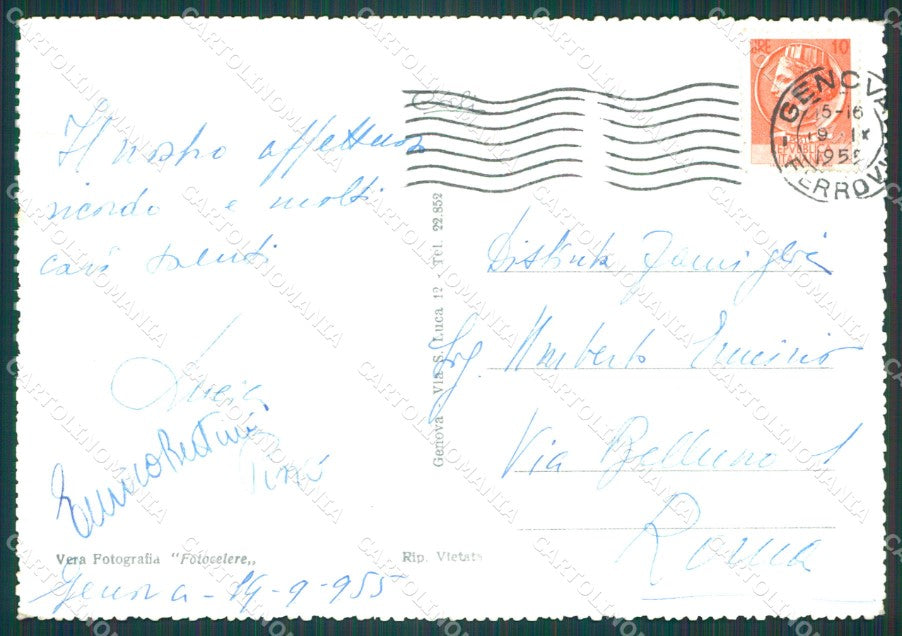 Il nostro affettuoso
ricordo e molti
cari saluti
Lucia
Enrico Bertini
Vera Fotografia "Fotocelere„
Genova - 19-9-955
Genova Via S. Luca 12 Tel. 22.852
Rip. Vietata
LIRE 10
GENOVA
15-16
19 IX
1955
FERROVIA
Distinta Famiglia
Sig. Umberto
Via Belluno 1
Roma
CARTOLINOMANIA